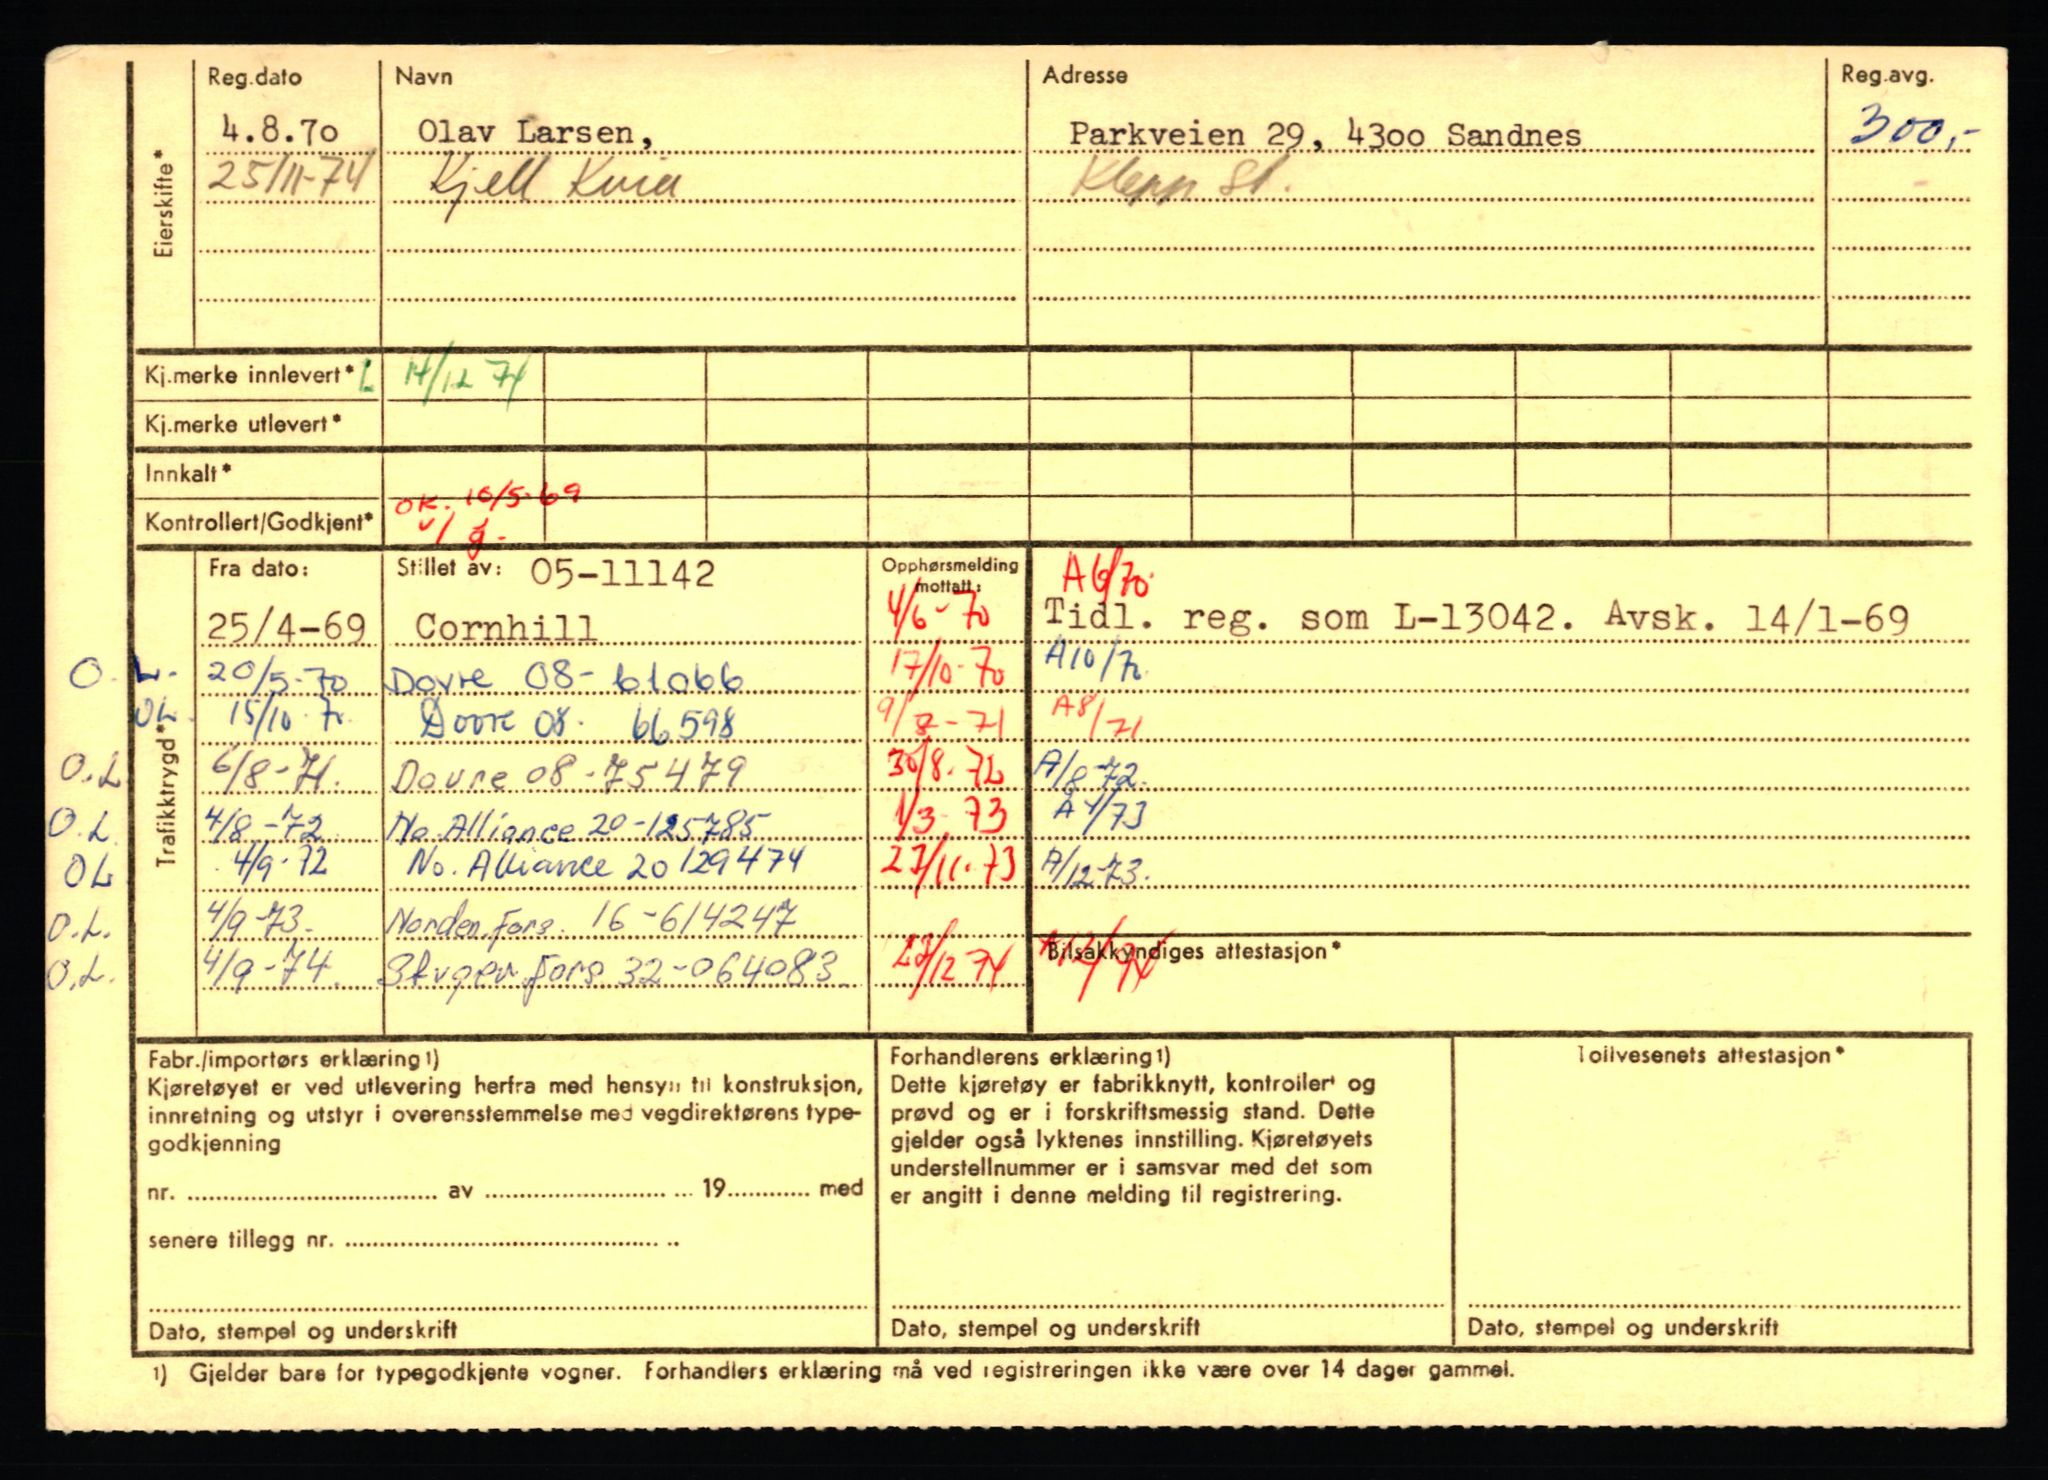 Reg.dato Navn Adresse Reg.avg.
4.8.70 Olav Larsen, Parkveien 29, 4300 Sandnes 300,-
25/11-74 Kjell Kvia Klepp St.
Eierskifte*
Kj.merke innlevert* L 14/12 74
Kj.merke utlevert*
Innkalt*
Kontrollert/Godkjent* OK. 10/5-69
v/ g.
Trafikktrygd*
Fra dato: Stillet av: 05-11142 Opphørsmelding mottatt: A6/70.
25/4-69 Cornhill 4/6-70 Tidl. reg. som L-13042. Avsk. 14/1-69
O. L. 20/5-70 Dovre 08-61066 17/10-70 A10/70
OL. 15/10-70 Dovre 08. 66598 9/8-71 A8/71
O.L 6/8-71. Dovre 08-75479 30/8.72 A/8-72.
O.L. 4/8-72 No.Alliance 20-125785 1/3-73 A4/73
OL 4/9-72 No. Alliance 20 129474 27/11.73 A/12-73.
O.L. 4/9-73. Norden.Fors. 16-614247
O.L. 4/9-74. Skogbr. Fors 32-064083. 23/12 74 A12/74
Bilsakkyndiges attestasjon*
Fabr./importørs erklæring1)
Kjøretøyet er ved utlevering herfra med hensyn til konstruksjon,
innretning og utstyr i overensstemmelse med vegdirektørens type-
godkjenning
nr. av 19 med
senere tillegg nr.
Dato, stempel og underskrift
Forhandlerens erklæring1)
Dette kjøretøy er fabrikknytt, kontrollert og
prøvd og er i forskriftsmessig stand. Dette
gjelder også lyktenes innstilling. Kjøretøyets
understellnummer er i samsvar med det som
er angitt i denne melding til registrering.
Dato, stempel og underskrift
Tollvesenets attestasjon*
Dato, stempel og underskrift
1) Gjelder bare for typegodkjente vogner. Forhandlers erklæring må ved registreringen ikke være over 14 dager gammel.